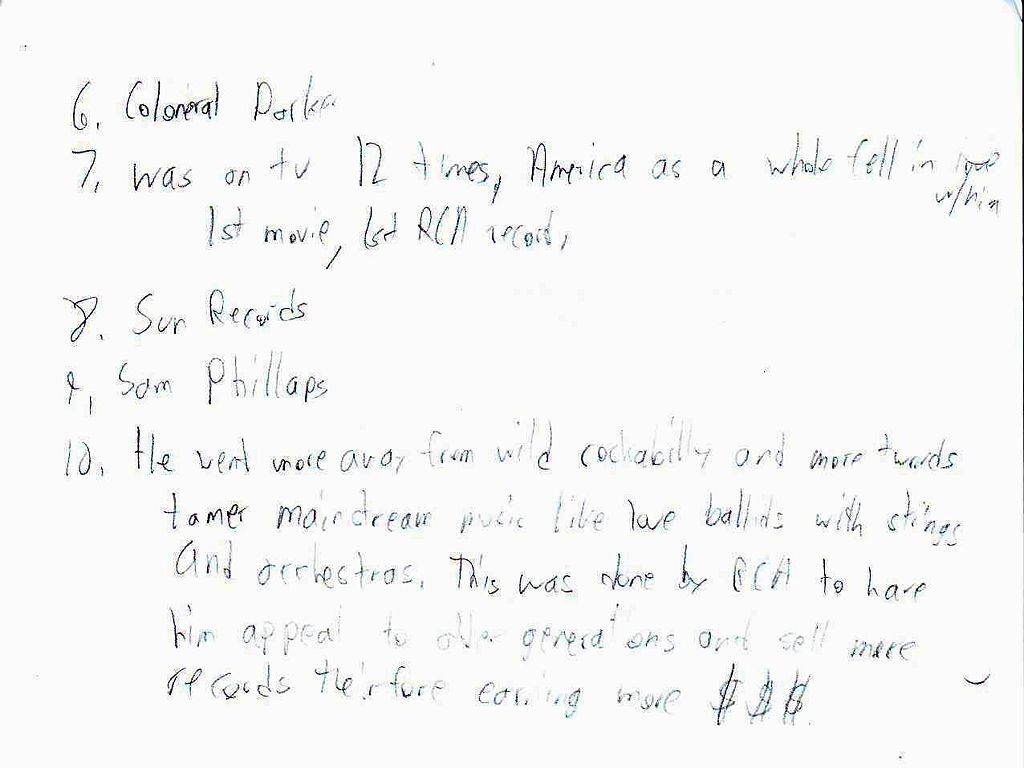 6. Coloneral Parker
7. was on tv 12 times, America as a whole fell in love
w/him
1st movie, 1st RCA record,
8. Sun Records
9, Sam Phillaps
10. He went more away from wild rockabilly and more twards
tamer mainstream music like love ballids with stings
and orchestras. This was done by RCA to have
him appeal to older generations and sell more
records theirfore earning more $$$.